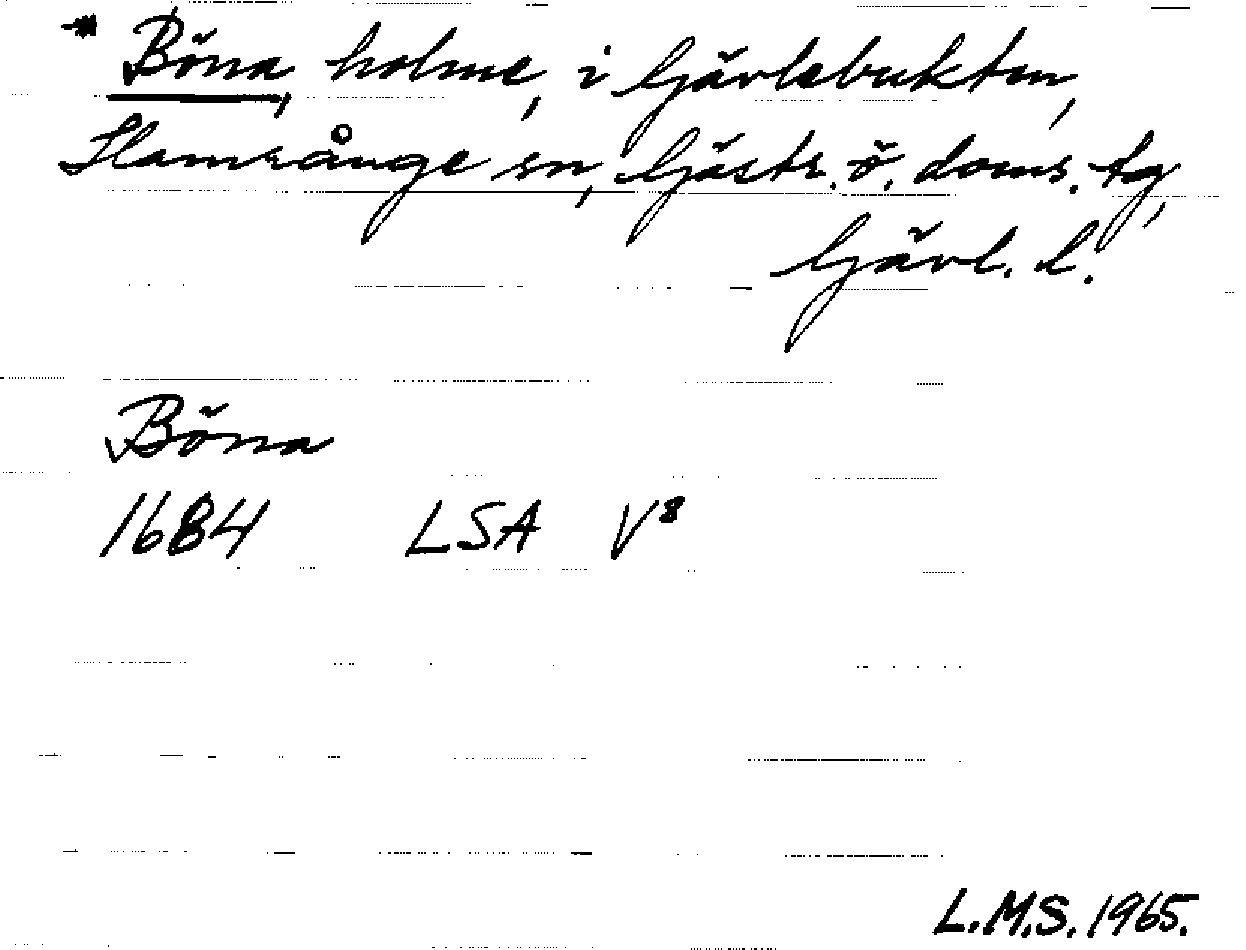 * Böna, holme, i Gävlebukten,
Hamrånge sn, Gästr. ö. doms. tg,
Gävl. l.
Böna
1684 LSA V⁸
L.M.S. 1965.